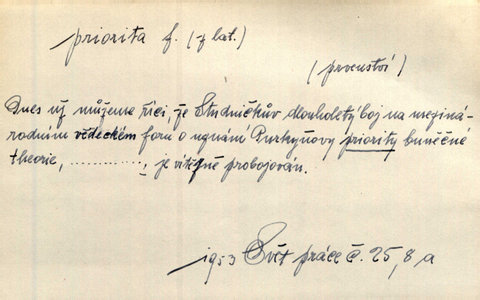 priorita f. (z lat.)
(prvenství)
Dnes už můžeme říci, že Studničkův dlouholetý boj na meziná-
rodním vědeckém foru o uznání Purkyňovy priority buněčné
theorie, ............., je vítězně probojován.
1953 Svět práce č. 25, 8 a